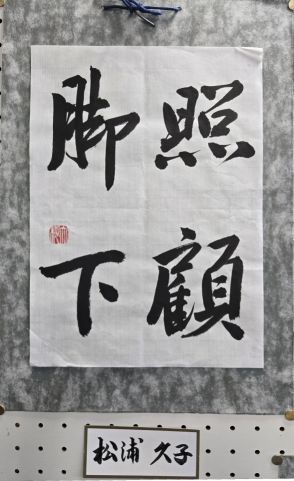 照顧
脚下
松浦 久子